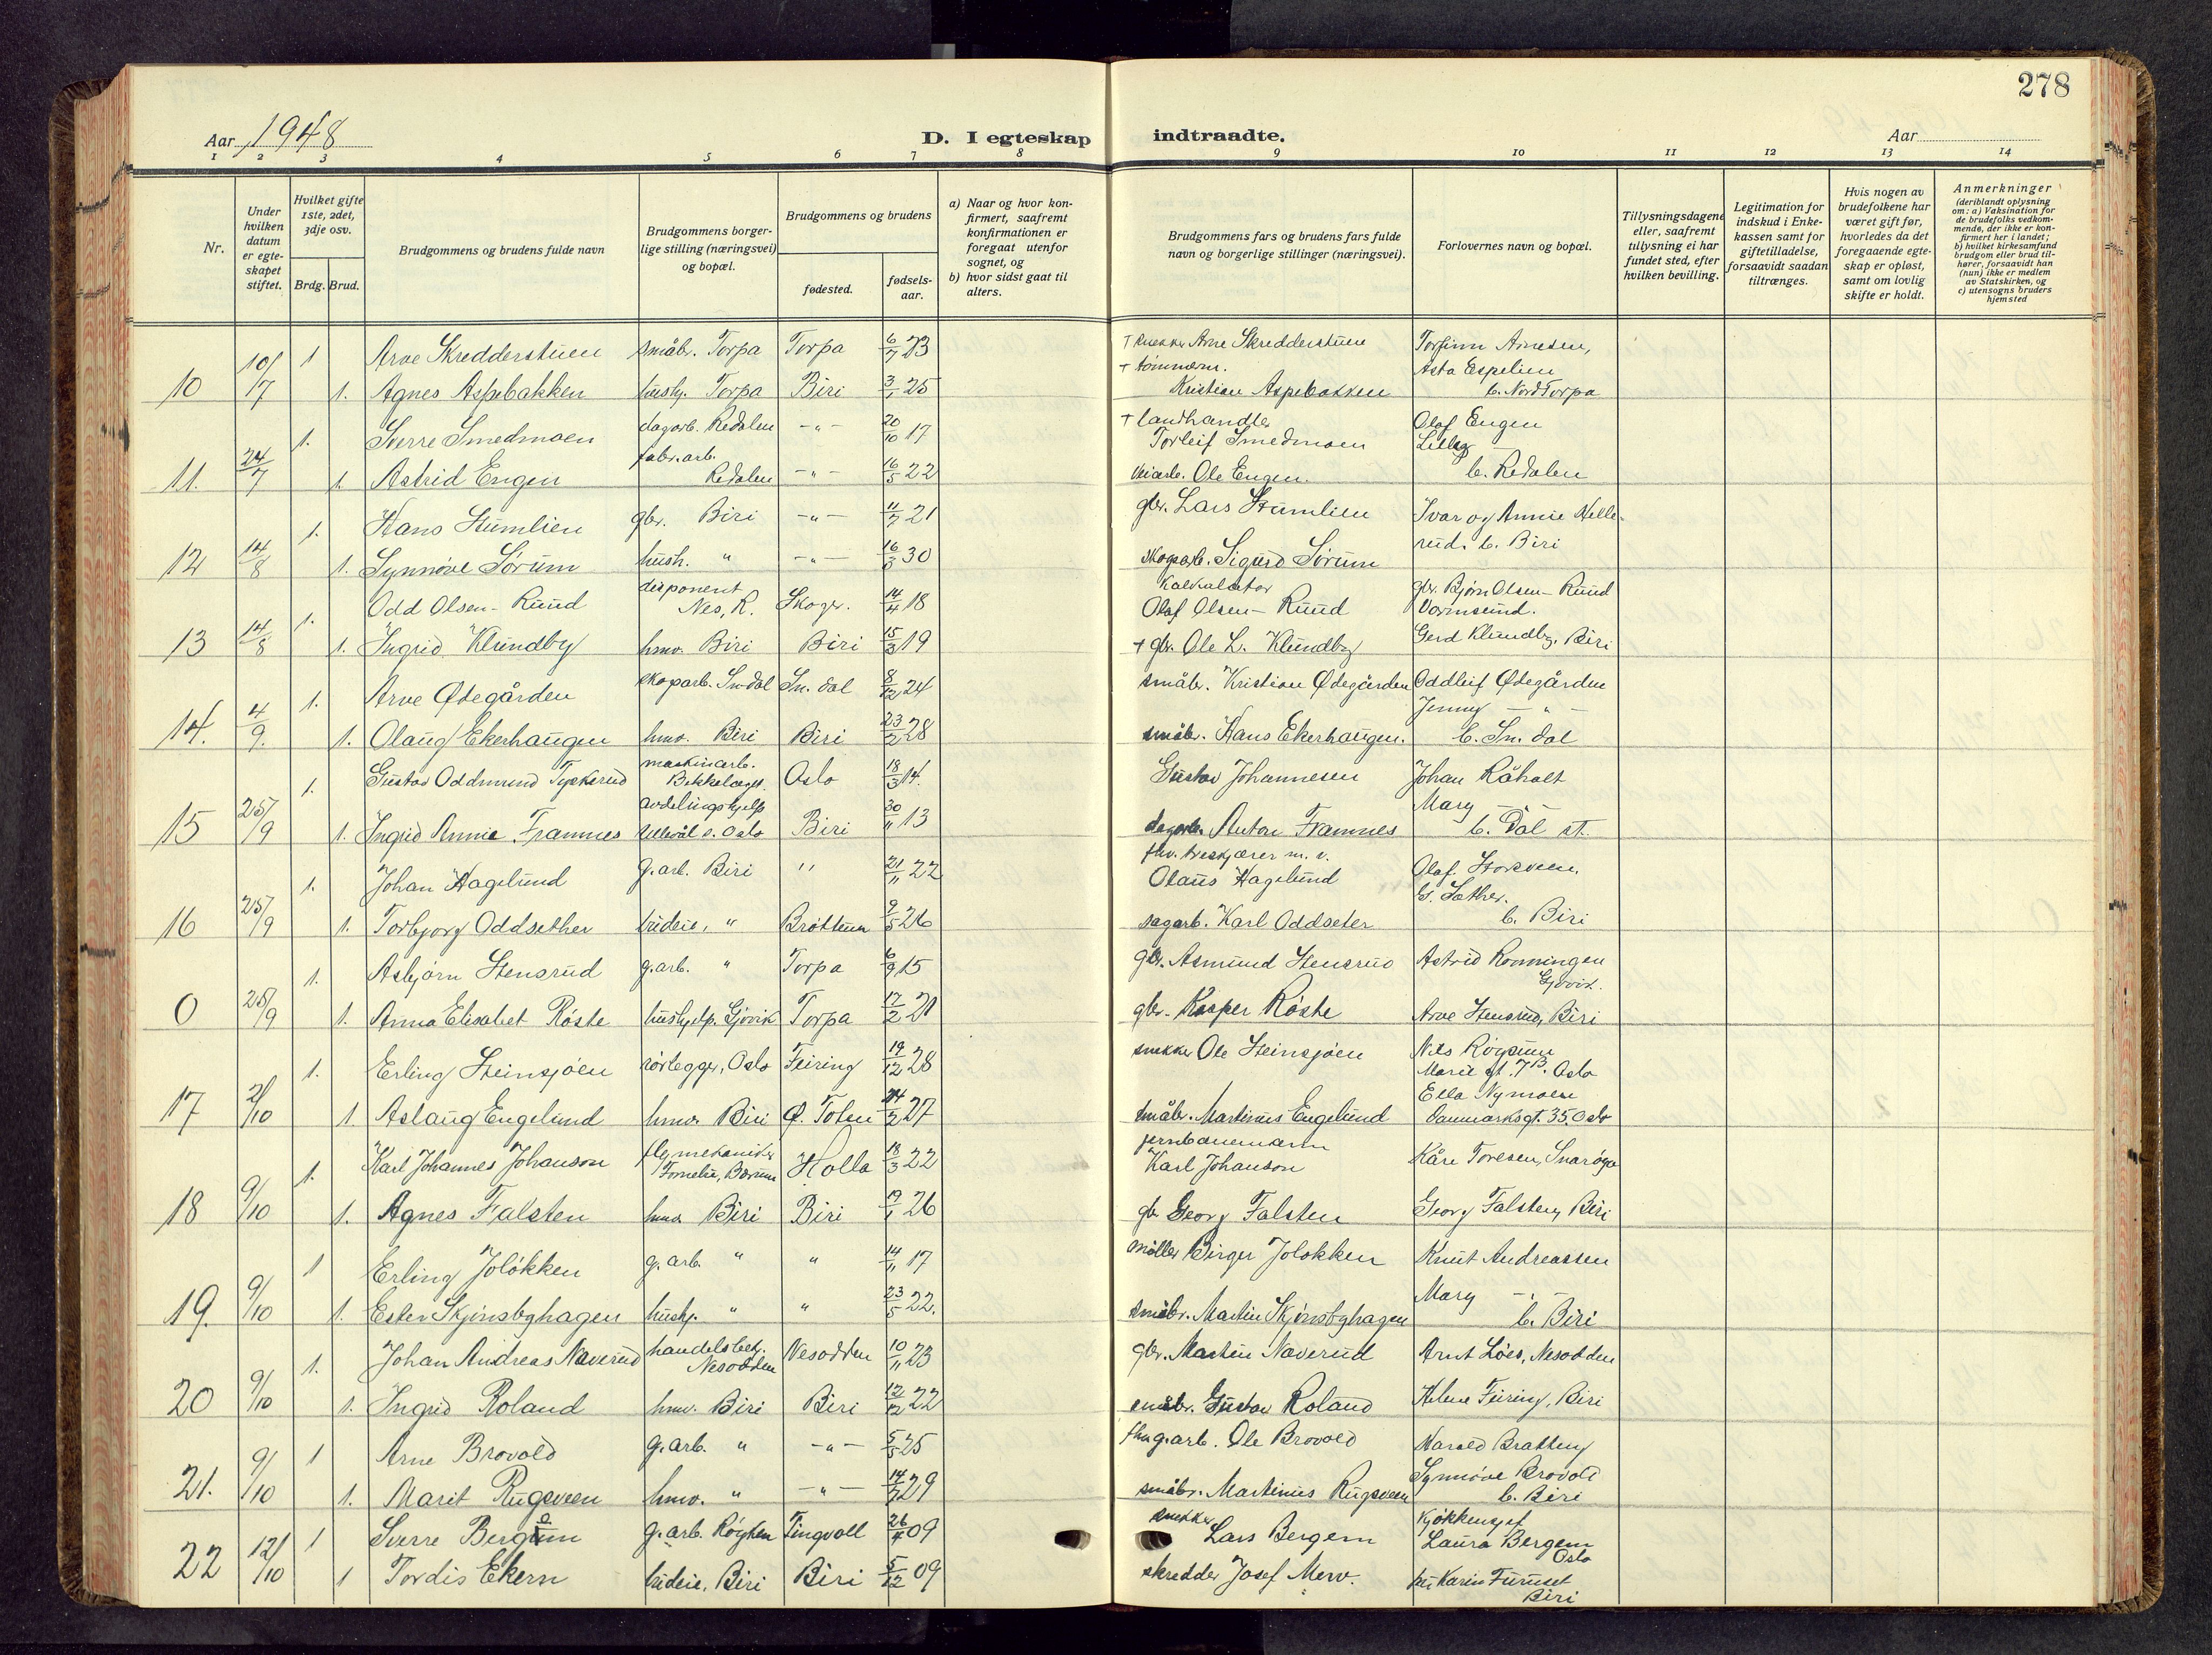 278
Aar 1948
D. I egteskap indtraadte.
Aar
1 2 3 4 5 6 7 8 9 10 11 12 13 14
Nr.
Under hvilken datum er egteskapet stiftet.
Hvilket gifte 1ste, 2det, 3dje osv.
Brdg. Brud.
Brudgommens og brudens fulde navn
Brudgommens borgerlige stilling (næringsvei) og bopæl.
Brudgommens og brudens
fødested.
fødselsaar.
a) Naar og hvor konfirmert, saafremt konfirmationen er foregaat utenfor sognet, og
b) hvor sidst gaat til alters.
Brudgommens fars og brudens fars fulde navn og borgerlige stillinger (næringsvei).
Forlovernes navn og bopæl.
Tillysningsdagene eller, saafremt tillysning ei har fundet sted, efter hvilken bevilling.
Legitimation for indskud i Enkekassen samt for giftetilladelse, forsaavidt saadan tiltrænges.
Hvis nogen av brudefolkene har været gift før, hvorledes da det foregaaende egteskap er opløst, samt om lovlig skifte er holdt.
Anmerkninger (deriblandt oplysning om: a) Vaksination for de brudefolks vedkommende, der ikke er konfirmert her i landet; b) hvilket kirkesamfund brudgom eller brud tilhører, forsaavidt han (hun) ikke er medlem av Statskirken, og c) utensogns bruders hjemsted
10/7 1 Arve Skredderstuen småbr. Torpa Torpa 6/7 23 † snekker Arne Skredderstuen Torfinn Arnesen,
10 1. Agnes Aspebakken hushj. Torpa Biri 3/1 25 † tømmerm. Kristian Aspebakken Asta Espelien b. Nord Torpa
1. Sverre Smedmoen dagarb. Redalen -"- 20/10 17 † landhandler Torleif Smedmoen Olaf Engen
11. 24/7 1. Astrid Engen fabr.arb. Redalen -"- 16/5 22 veiarb. Ole Engen. b. Redalen
1. Hans Stumlien gbr. Biri -"- 11/7 21 gbr. Lars Stumlien Ivar og Annie Helle-
12 14/8 1. Synnøve Sørum hush. " -"- 16/3 30 skogarb. Sigurd Sørum rud. b. Biri
1. Odd Olsen-Ruud disponent Nes, R. Skoger. 14/4 18 Kalkulator Olaf Olsen-Ruud gbr. Bjørn Olsen-Ruud Vormsund.
13 14/8 1. Ingrid Klundby hmv. Biri Biri 15/3 19 † gbr. Ole L. Klundby Gerd Klundby, Biri
1. Arve Ødegården skogarb. Sn.dal Sn. dal 8/12 24 småbr. Kristian Ødegården Oddleif Ødegården
14. 4/9. 1. Olaug Ekerhaugen hmv. Biri Biri 23/2 28 småbr. Hans Ekerhaugen. Jenny -"- b. Sn. dal
1. Gustav Oddmund Tyskerud maskinarb. Bekkelaget. Oslo 18/3 14. Gustav Johannesen Johan Råholt
15 25/9 1. Ingrid Annie Framnes avdelingshjelp Ullevål s. Oslo Biri 30/11 13 dagarb. Anton Framnes Mary -"- b. Dal st.
1. Johan Hagelund g.arb. Biri " 21/11 22 fhv. treskjærer m. v. Olaus Hagelund Olaf Storsveen,
16 25/9 1. Torbjørg Oddsether budeie, " Brøttum 9/5 26 sagarb. Karl Oddseter G. Sæther. b. Biri
1. Asbjørn Stensrud g.arb. " Torpa 6/9 15 gbr. Asmund Stensrud Astrid Rønningen Gjøvik.
0 25/9 1. Anna Elisabet Røste hushjelp. Gjøvik Torpa 17/2 21 gbr. Kasper Røste Arve Stensrud, Biri
1. Erling Steinsjøen rørlegger, Oslo Feiring 19/12 28 snekker Ole Steinsjøen Nils Røysum Marie gt. 7B. Oslo
17 2/10 1. Aslaug Engelund hmv. Biri Ø. Toten 14/2 27 småbr. Martinius Engelund Ella Nymoen Danmarksgt. 35, Oslo
1. Karl Johannes Johanson flymekaniker Fornebu, Bærum Holla 18/3 22 jernbanemann Karl Johanson Kåre Toresen, Snarøya
18 9/10 1. Agnes Falsten hmv. Biri Biri 19/1 26 gbr Georg Falsten Georg Falsten, Biri
1 Erling Joløkken g.arb. " " 14/11 17 møller Birger Joløkken Knut Andreassen
19. 9/10 1. Ester Skjønsbyhagen hushj. " " 23/5 22. småbr. Martin Skjønsbyhagen Mary -"- b. Biri
1. Johan Andreas Naverud handelsbetj. Nesodden Nesodden 10/11 23 gbr. Martin Naverud Arnt Løes, Nesodden
20 9/10 1. Ingrid Roland hmv. Biri Biri 12/12 22 småbr. Gustav Roland Helene Feiring, Biri
1 Arne Brovold g.arb. " -"- 5/5 25 fhv g.arb. Ole Brovold Harald Bratteng
21. 9/10 1. Marit Rugsveen hmv. " -"- 14/7 29 småbr. Martinius Rugsveen Synnøve Brovold b. Biri
1 Sverre Bergem g.arb. Røyken Tingvoll 26/4 09 snekker Lars Bergem kjøkkensjef Laura Bergem Oslo
22 12/10 1 Tordis Ekern budeie, Biri Biri 5/12 09 skredder Josef Merv. fru Karin Furuset Biri